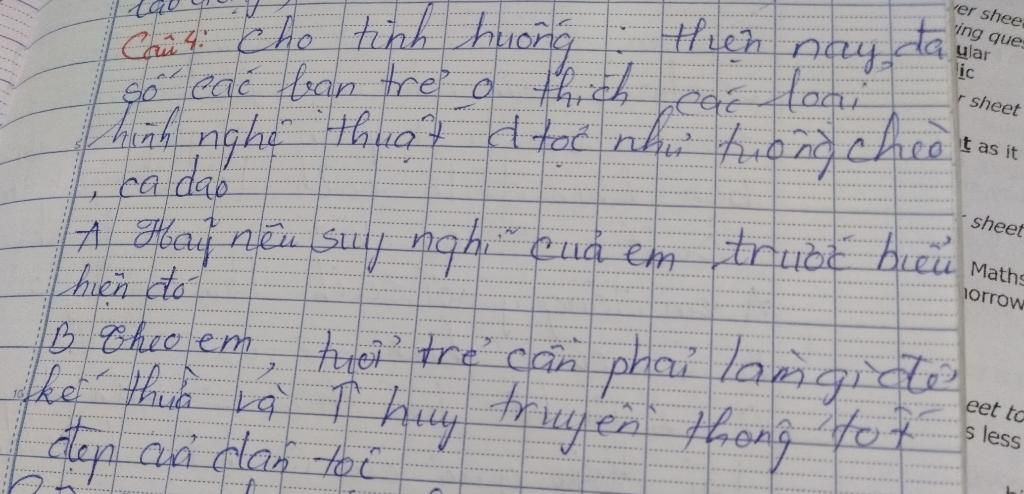 Câu 4: Cho tình huống : Hiện nay, đa
số các bạn trẻ o thích các loại
hình nghệ thuật d tộc như tuồng chèo
, ca dao
A Hãy nêu suy nghĩ của em trước biểu
hiện đó
B Theo em, tuổi trẻ cần phải làm gì để
kế thừa và ↑ huy truyền thống tốt
đẹp của dân tộc
ver sheet
ing ques
ular
ic
r sheet
t as it
sheet
Maths
orrow
eet to
s less